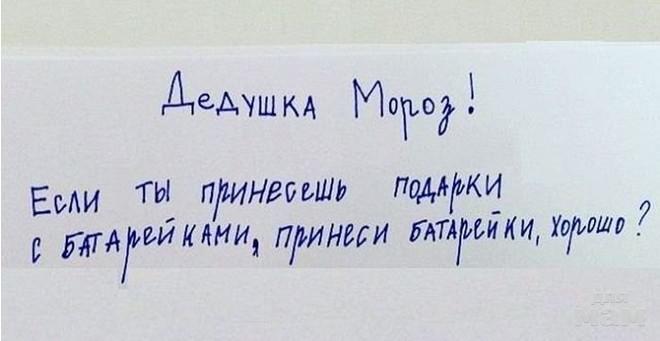 Дедушка Мороз!
Если ты принесешь подарки
с батарейками, принеси батарейки, хорошо?
для
мам